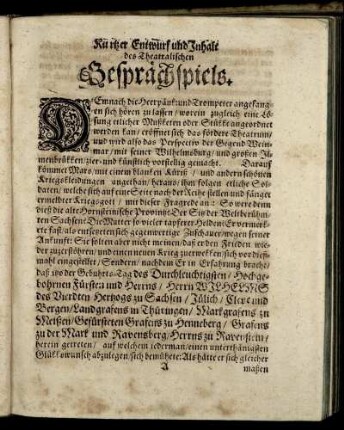 Kurtzer Entwurf und Inhalt
des Theatralischen
Gesprächspiels.
DEmnach die Heerpauk und Trompeter angefangen
sich hören zu lassen / worein zugleich eine Lösung
etlicher Mußketen oder Stükke angeordnet
werden kan / eröffnet sich das fördere Theatrum/
und wird also das Perspectiv der Gegend Weinmar
/ mit seiner Wilhelmsburg / und großen Ilmenbrükken
zier- und künstlich vorstellig gemacht. Darauf
kömmet Mars, mit einem blanken Küriß / und andern schönen
Kriegskleidungen angethan / heraus / ihm folgen etliche Soldaten
/ welche sich auf eine Seite nach der Reihe stellen und fänget
ermeldter Kriegsgott / mit dieser Fragrede an: So were denn
dieß die alte Hornsteinische Provintz: Der Sitz der Weltberühmten
Sachsen: Die Mutter so vieler tapferer Helden; Er vermerkete
fast als entsetzeten sich gegenwertige Zuschauer / wegen seiner
Ankunft: Sie solten aber nicht meinen / daß er den Frieden wieder
zuzerstöhren / und einen neuen Krieg zuerwekken sich vor dießmahl
eingestellet / Sondern / nachdem Er in Erfahrung bracht/
daß itzo der Gebuhrts-Tag des Durchleuchtigsten / Hochgebohrnen
Fürsten und Herrns / Herrn WILHELMS
des Vierdten Hertzogs zu Sachsen / Jülich / Cleve und
Bergen / Landgrafens in Thüringen / Markgrafens zu
Meißen / Gefürsteten Grafens zu Henneberg / Grafens
zu der Mark und Ravensberg / Herrns zu Ravenstein /
herein getreten / auf welchem iederman / einen unterthänigsten
Glükkswunsch abzulegen / sich bemühete: Als hätte er sich gleicher
A maßen